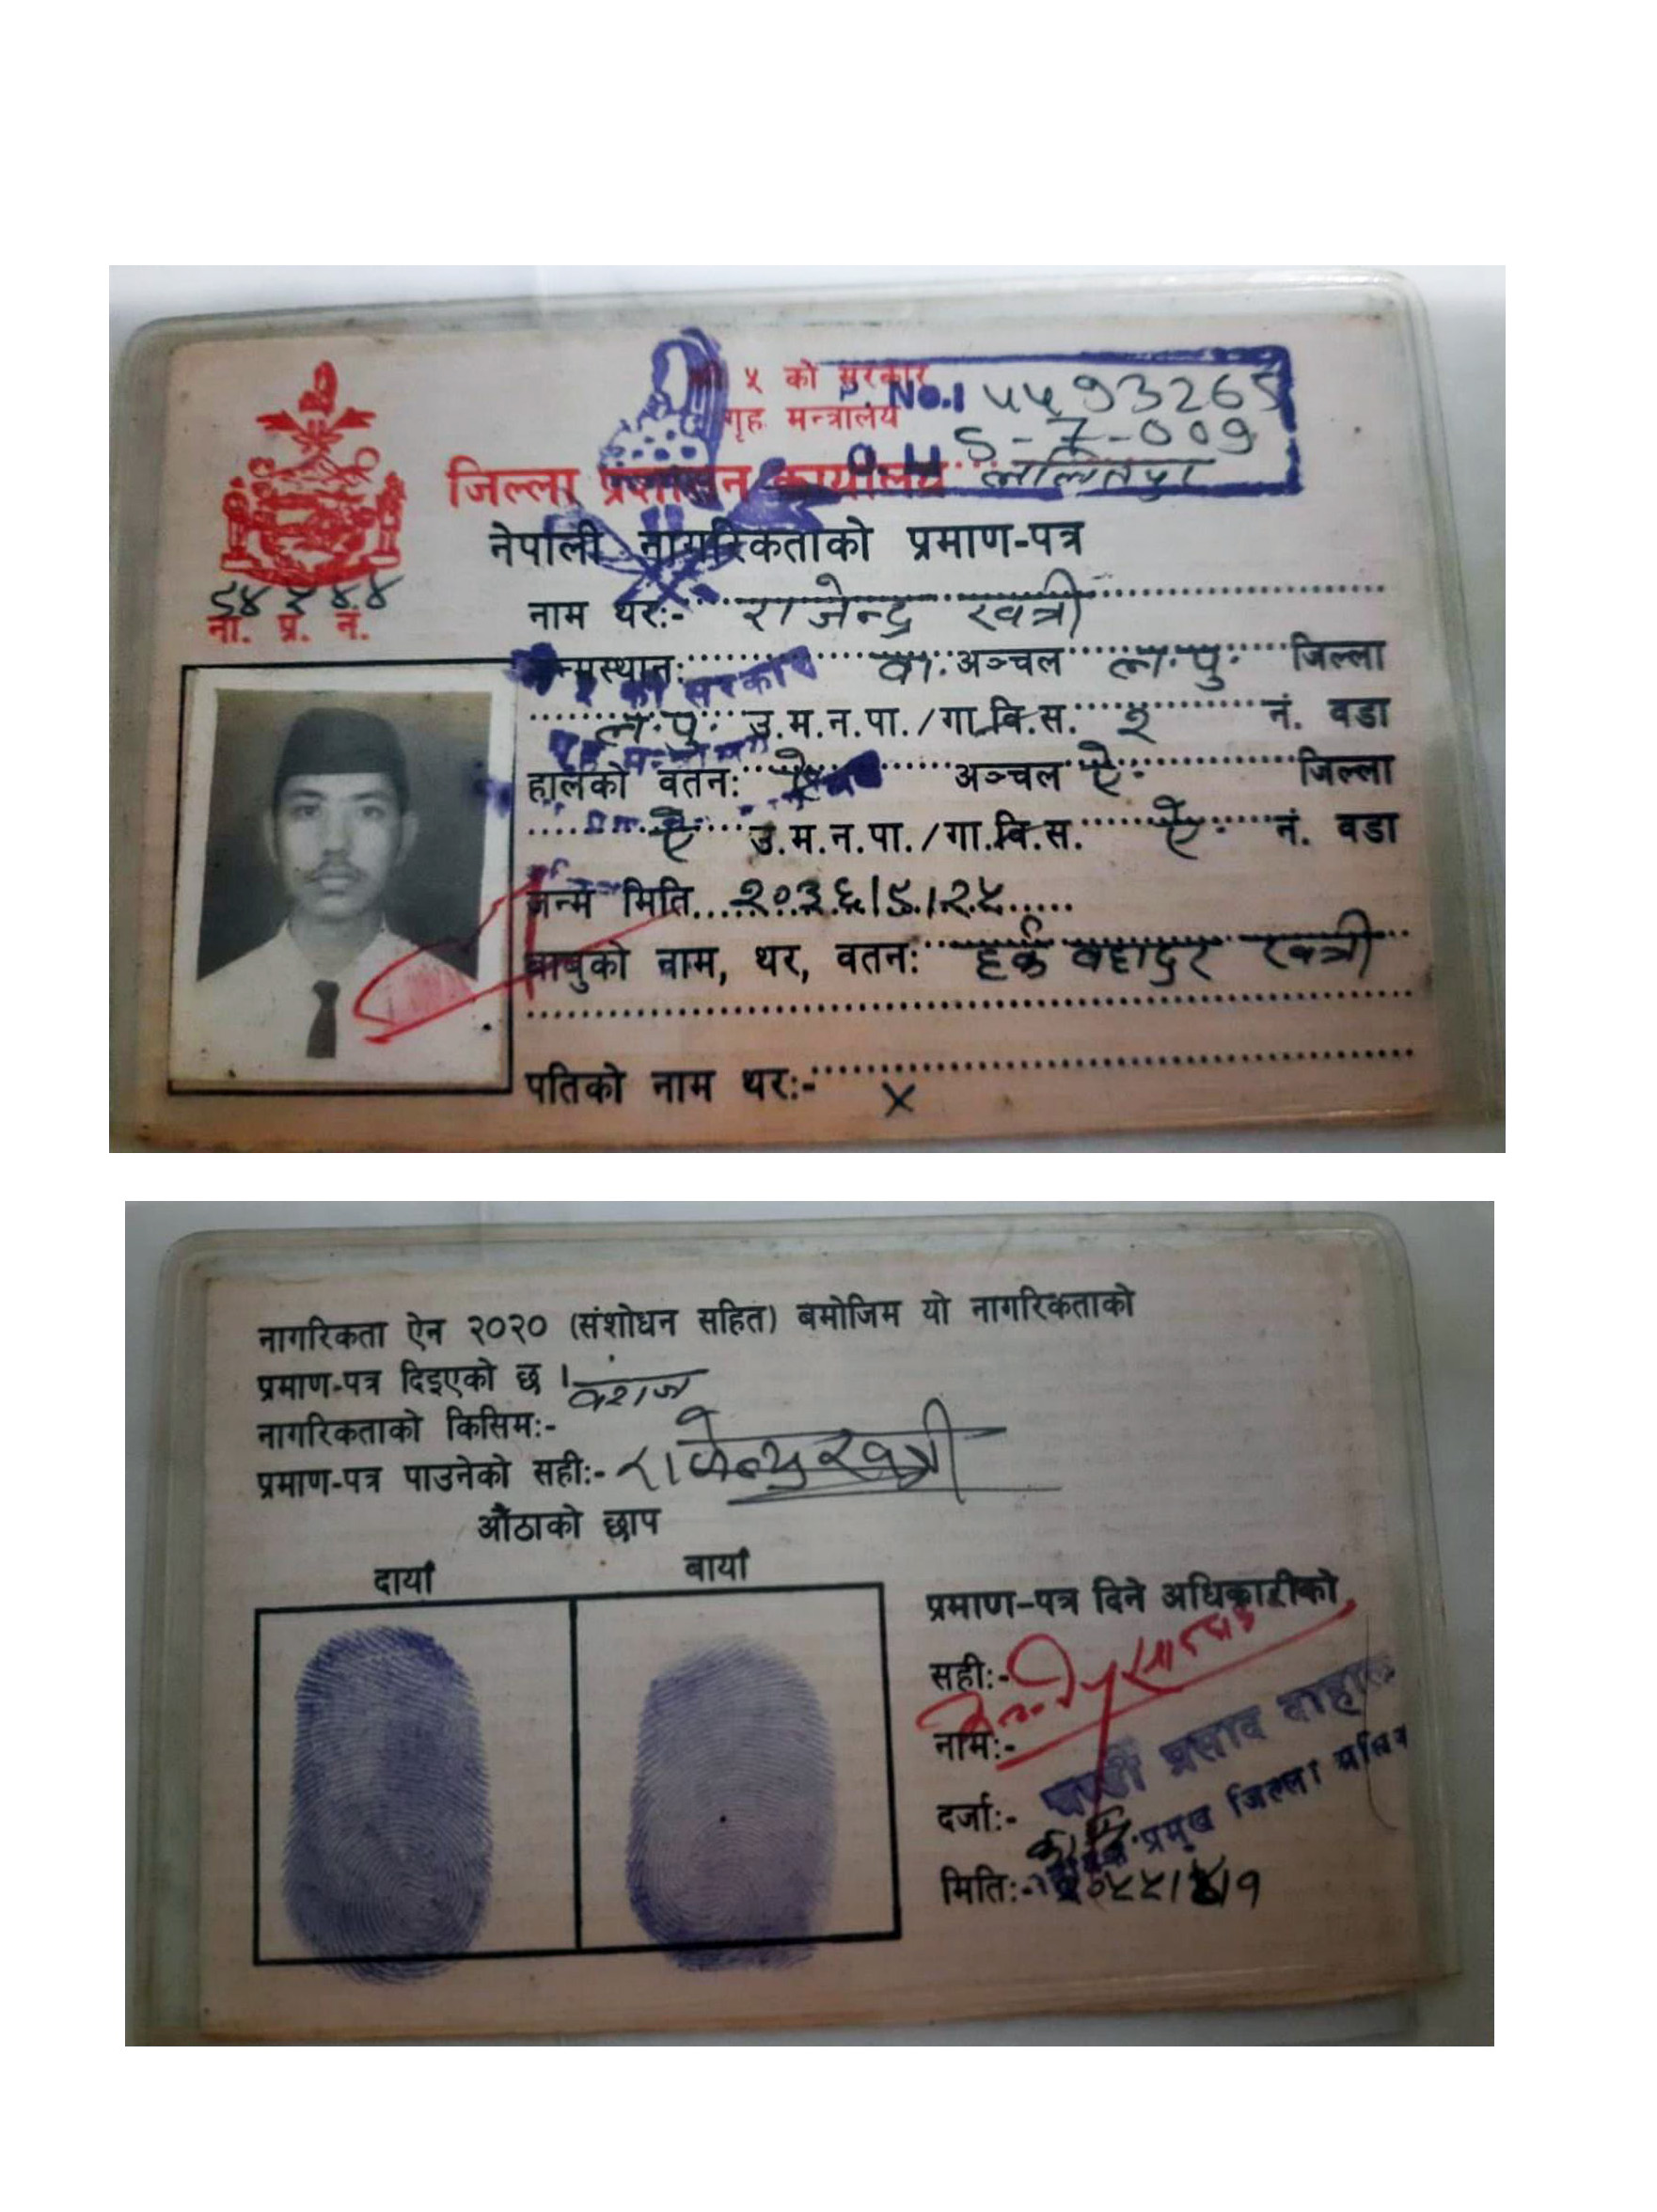 श्री ५ को सरकार
गृह मन्त्रालय
No. 5513265
5-7-009
जिल्ला प्रशासन कार्यालय ललितपुर
नेपाली नागरिकताको प्रमाण-पत्र
ना. प्र. नं.
नाम थर:- राजेन्द्र खत्री
जन्मस्थान: वा. अञ्चल ल.पु. जिल्ला
ल.पु. उ.म.न.पा./गा.वि.स. २ नं. वडा
हालको वतन: ऐ अञ्चल ऐ. जिल्ला
ऐ उ.म.न.पा./गा.वि.स. ऐ. नं. वडा
जन्म मिति २०३६।९।२५
बाबुको नाम, थर, वतन: हर्क बहादुर खत्री
पतिको नाम थर:- X
नागरिकता ऐन २०२० (संशोधन सहित) बमोजिम यो नागरिकताको
प्रमाण-पत्र दिइएको छ । वंशज
नागरिकताको किसिम:-
प्रमाण-पत्र पाउनेको सही:- राजेन्द्र खत्री
औंठाको छाप
दायाँ बायाँ
प्रमाण-पत्र दिने अधिकारीको
सही:-
नाम:- प्रसाद दाहाल
दर्जा:- प्रमुख जिल्ला
मिति:-